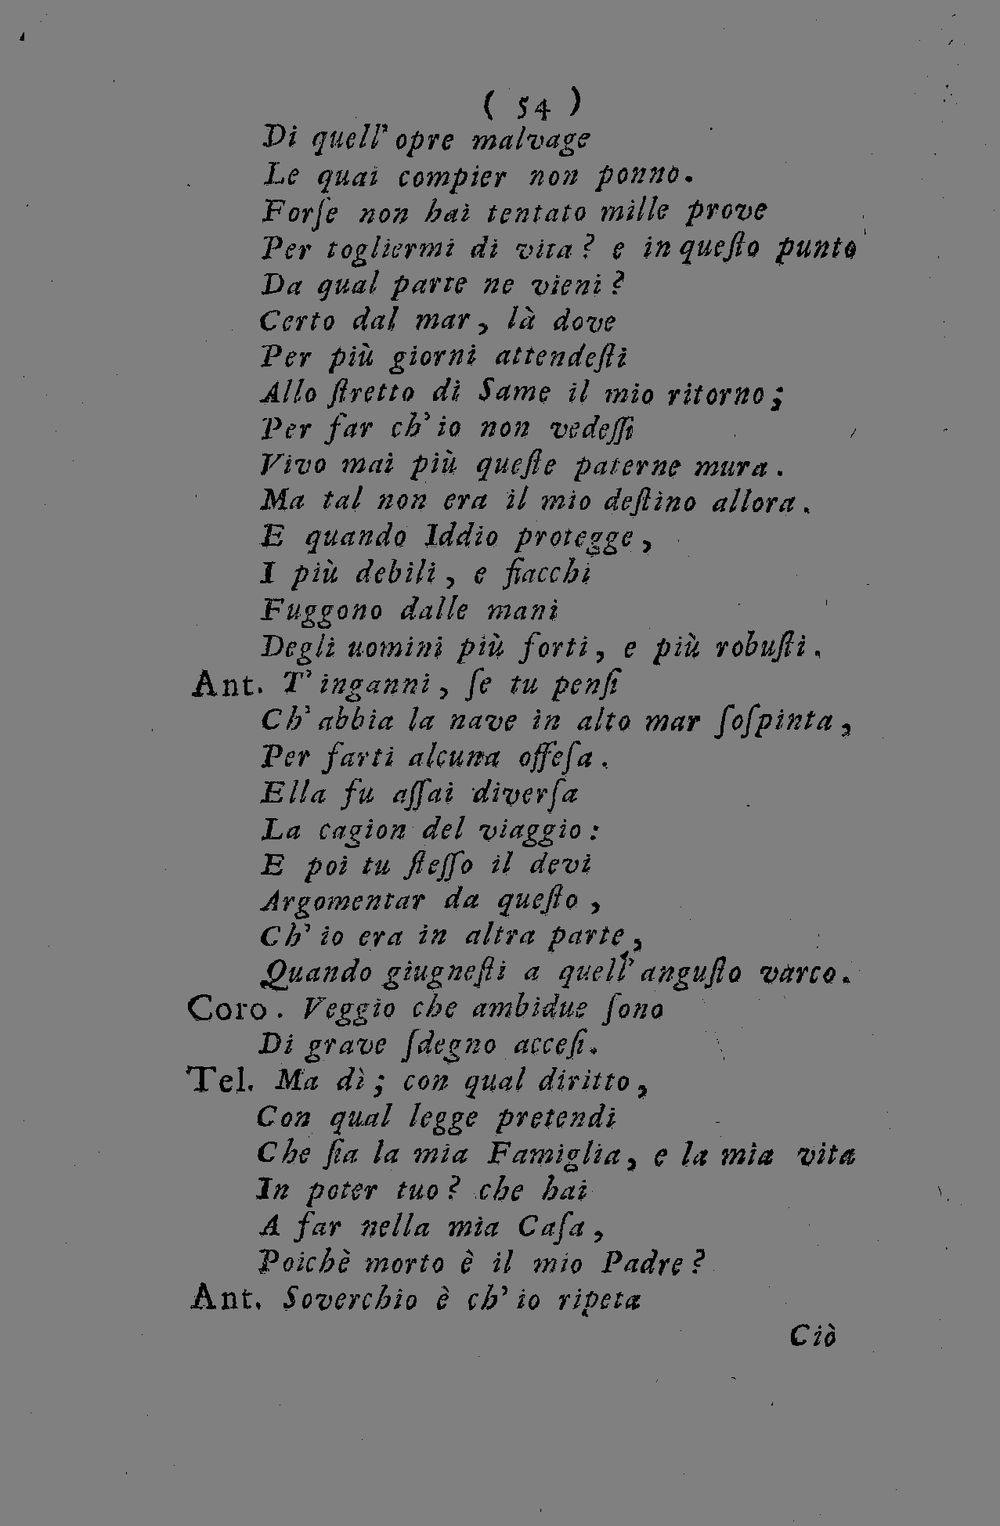 ( 54 )
Di quell' opre malvage
Le quai compier non ponno.
Forſe non hai tentato mille prove
Per togliermi di vita? e in queſto punto
Da qual parte ne vieni?
Certo dal mar, là dove
Per più giorni attendeſti
Allo ſtretto di Same il mio ritorno;
Per far ch' io non vedeſſi
Vivo mai più queſte paterne mura.
Ma tal non era il mio deſtino allora.
E quando Iddio protegge,
I più debili, e fiacchi
Fuggono dalle mani
Degli uomini più forti, e più robuſti.
Ant. T' inganni, ſe tu penſi
Ch' abbia la nave in alto mar ſoſpinta,
Per farti alcuna offeſa.
Ella fu aſſai diverſa
La cagion del viaggio:
E poi tu ſteſſo il devi
Argomentar da queſto,
Ch' io era in altra parte,
Quando giugneſti a quell' anguſto varco.
Coro. Veggio che ambidue ſono
Di grave ſdegno acceſi.
Tel. Ma dì; con qual diritto,
Con qual legge pretendi
Che ſia la mia Famiglia, e la mia vita
In poter tuo? che hai
A far nella mia Caſa,
Poichè morto è il mio Padre?
Ant. Soverchio è ch' io ripeta
Ciò